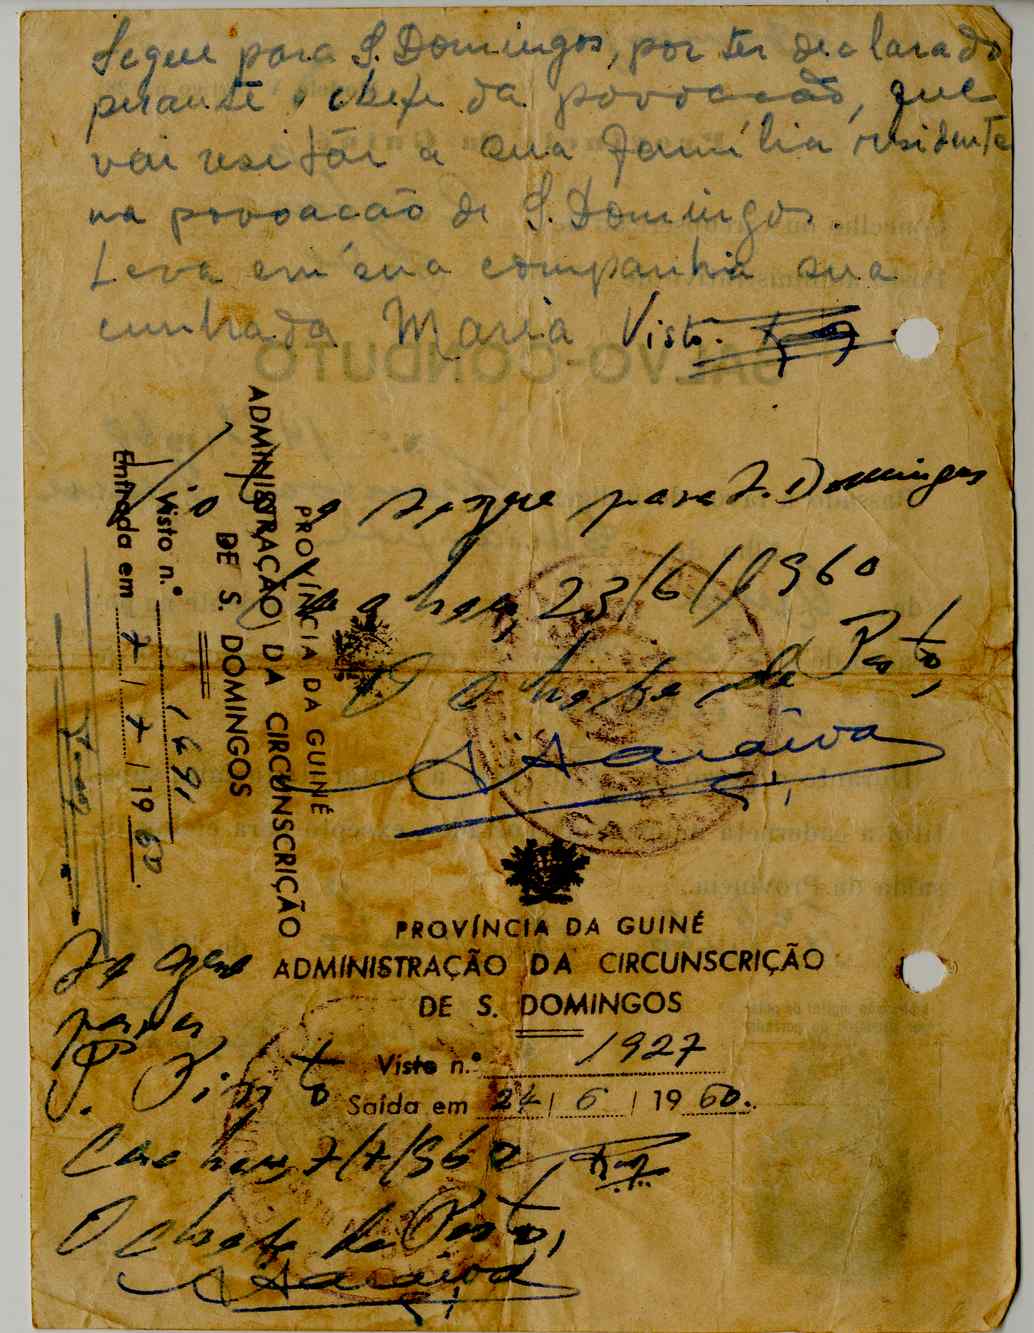 Segue para S. Domingos, por ter declarado
perante o chefe da povoacão, que
vai visitar a sua família, residente
na povoacão de S. Domingos
Leva em sua companhia sua
cunhada Maria Visto.
SALVO-CONDUTO
Visto e segue para S. Domingos
Cacheu, 23/6/1960
O Chefe de Posto,
Saraiva
CACHEU
PROVÍNCIA DA GUINÉ
ADMINISTRAÇÃO DA CIRCUNSCRIÇÃO
DE S. DOMINGOS
Visto n.º 1691
Entrada em 7 / 7 / 19 60.
PROVÍNCIA DA GUINÉ
ADMINISTRAÇÃO DA CIRCUNSCRIÇÃO
DE S. DOMINGOS
Visto n.º 1927
Saída em 24 / 6 / 19 60.
para
Cacheu, 7/7/960
O Chefe de Posto,
Saraiva